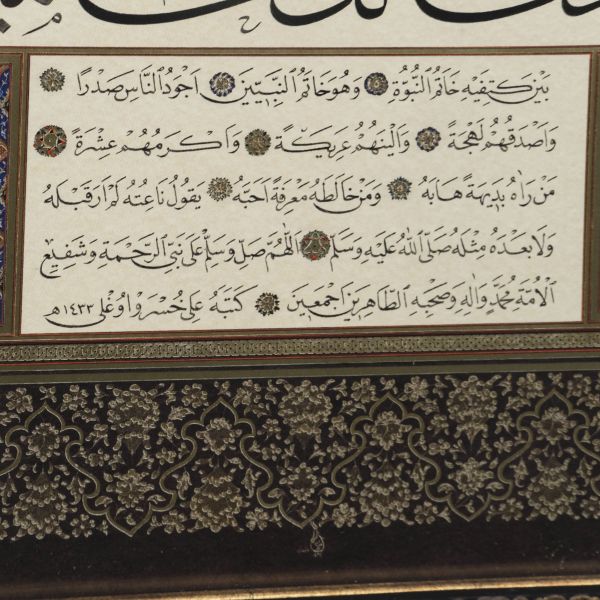 بَيْنَ كَتِفَيْهِ خَاتَمُ النُّبُوَّةِ وَهُوَ خَاتَمُ النَّبِيِّينَ اَجْوَدُ النَّاسِ صَدْرًا
وَاَصْدَقُهُمْ لَهْجَةً وَاَلْيَنُهُمْ عَرِيكَةً وَاَكْرَمُهُمْ عِشْرَةً
مَنْ رَاٰهُ بَدِيهَةً هَابَهُ وَمَنْ خَالَطَهُ مَعْرِفَةً اَحَبَّهُ يَقُولُ نَاعِتُهُ لَمْ اَرَ قَبْلَهُ
وَلَا بَعْدَهُ مِثْلَهُ صَلَّى اللهُ عَلَيْهِ وَسَلَّمَ اَللّٰهُمَّ صَلِّ وَسَلِّمْ عَلٰى نَبِيِّ الرَّحْمَةِ وَشَفِيعِ
الْاُمَّةِ مُحَمَّدٍ وَاٰلِهِ وَصَحْبِهِ الطَّاهِرِينَ اَجْمَعِينَ كَتَبَهُ عَلِي خُسْرَوْ اوُغْلِى ١٤٣٢هـ